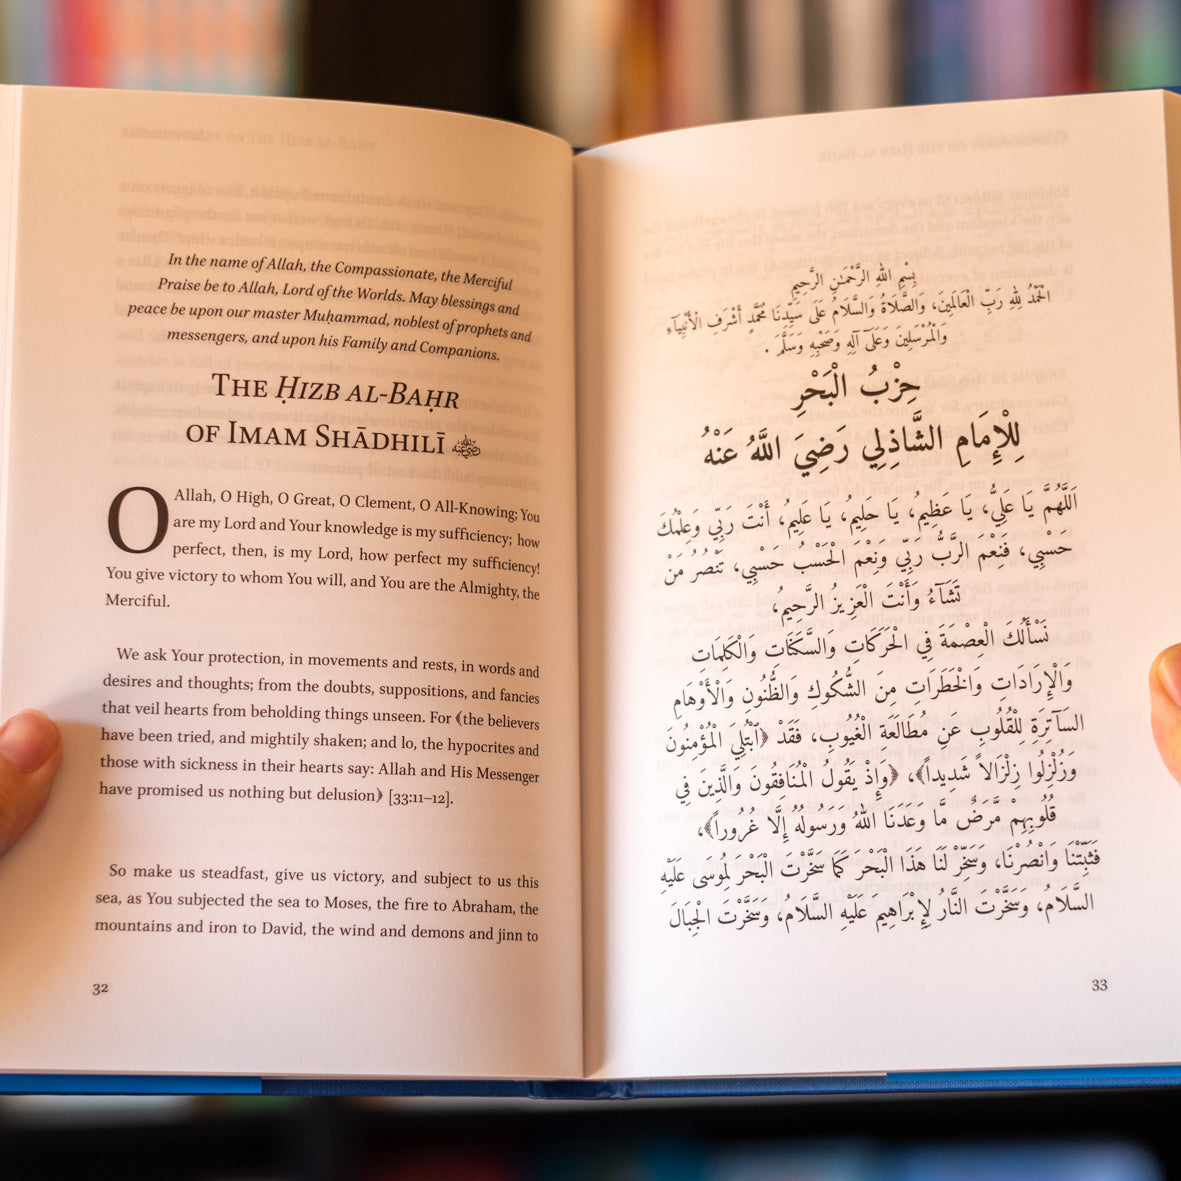 In the name of Allah, the Compassionate, the Merciful
Praise be to Allah, Lord of the Worlds. May blessings and
peace be upon our master Muḥammad, noblest of prophets and
messengers, and upon his Family and Companions.
The Ḥizb al-Baḥr
of Imam Shādhilī
O Allah, O High, O Great, O Clement, O All-Knowing; You
are my Lord and Your knowledge is my sufficiency; how
perfect, then, is my Lord, how perfect my sufficiency!
You give victory to whom You will, and You are the Almighty, the
Merciful.
We ask Your protection, in movements and rests, in words and
desires and thoughts; from the doubts, suppositions, and fancies
that veil hearts from beholding things unseen. For ⟪the believers
have been tried, and mightily shaken; and lo, the hypocrites and
those with sickness in their hearts say: Allah and His Messenger
have promised us nothing but delusion⟫ [33:11–12].
So make us steadfast, give us victory, and subject to us this
sea, as You subjected the sea to Moses, the fire to Abraham, the
mountains and iron to David, the wind and demons and jinn to
32
بِسْمِ اللهِ الرَّحْمَٰنِ الرَّحِيمِ
الْحَمْدُ لِلهِ رَبِّ الْعَالَمِينَ، وَالصَّلَاةُ وَالسَّلَامُ عَلَى سَيِّدِنَا مُحَمَّدٍ أَشْرَفِ الْأَنْبِيَآءِ
وَالْمُرْسَلِينَ وَعَلَى آلِهِ وَصَحْبِهِ وَسَلَّمَ .
حِزْبُ الْبَحْرِ
لِلْإِمَامِ الشَّاذِلِي رَضِيَ اللَّهُ عَنْهُ
اَللَّهُمَّ يَا عَلِيُّ، يَا عَظِيمُ، يَا حَلِيمُ، يَا عَلِيمُ، أَنْتَ رَبِّي وَعِلْمُكَ
حَسْبِي، فَنِعْمَ الرَّبُّ رَبِّي وَنِعْمَ الْحَسْبُ حَسْبِي، تَنْصُرُ مَنْ
تَشَآءُ وَأَنْتَ الْعَزِيزُ الرَّحِيمُ،
نَسْأَلُكَ الْعِصْمَةَ فِي الْحَرَكَاتِ وَالسَّكَنَاتِ وَالْكَلِمَاتِ
وَالْإِرَادَاتِ وَالْخَطَرَاتِ مِنَ الشُّكُوكِ وَالظُّنُونِ وَالْأَوْهَامِ
السَّآتِرَةِ لِلْقُلُوبِ عَنِ مُطَالَعَةِ الْغُيُوبِ، فَقَدْ ﴿ٱبْتُلِيَ الْمُؤْمِنُونَ
وَزُلْزِلُوا زِلْزَالاً شَدِيداً﴾، ﴿وَإِذْ يَقُولُ الْمُنَافِقُونَ وَالَّذِينَ فِي
قُلُوبِهِمْ مَّرَضٌ مَّا وَعَدَنَا اللهُ وَرَسُولُهُ إِلَّا غُرُوراً﴾،
فَثَبِّتْنَا وَانْصُرْنَا، وَسَخِّرْ لَنَا هَذَا الْبَحْرَ كَمَا سَخَّرْتَ الْبَحْرَ لِمُوسَى عَلَيْهِ
السَّلَامُ، وَسَخَّرْتَ النَّارَ لِإِبْرَاهِيمَ عَلَيْهِ السَّلَامُ، وَسَخَّرْتَ الْجِبَالَ
33